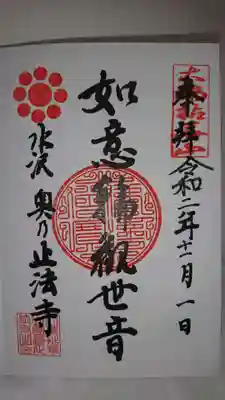 奉拝 令和二年十一月一日
如意輪観世音
水沢 奥乃正法寺